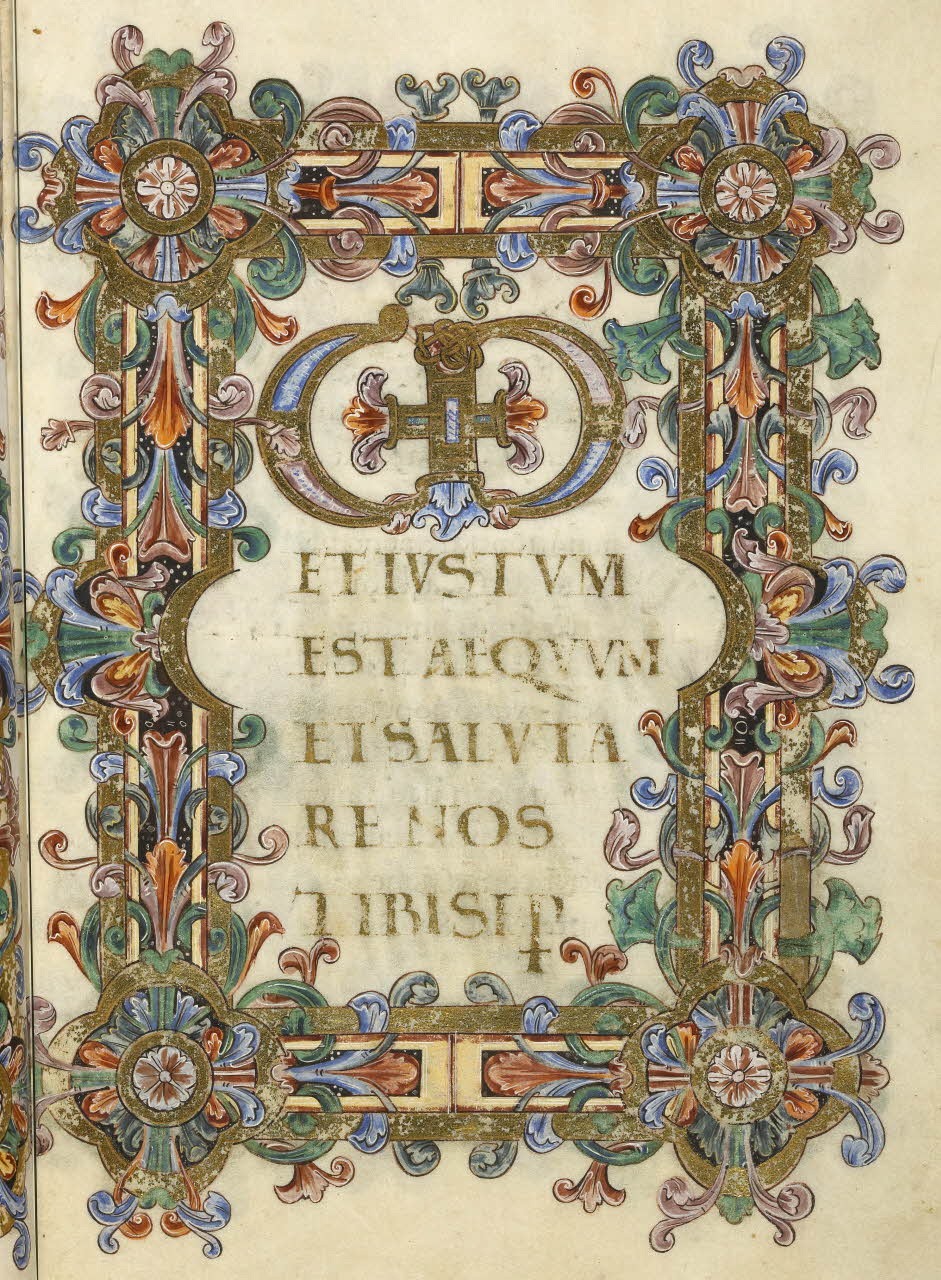 VD
ET IVSTVM
EST AEQVVM
ET SALVTA
RE NOS
TIBI SEꝑ